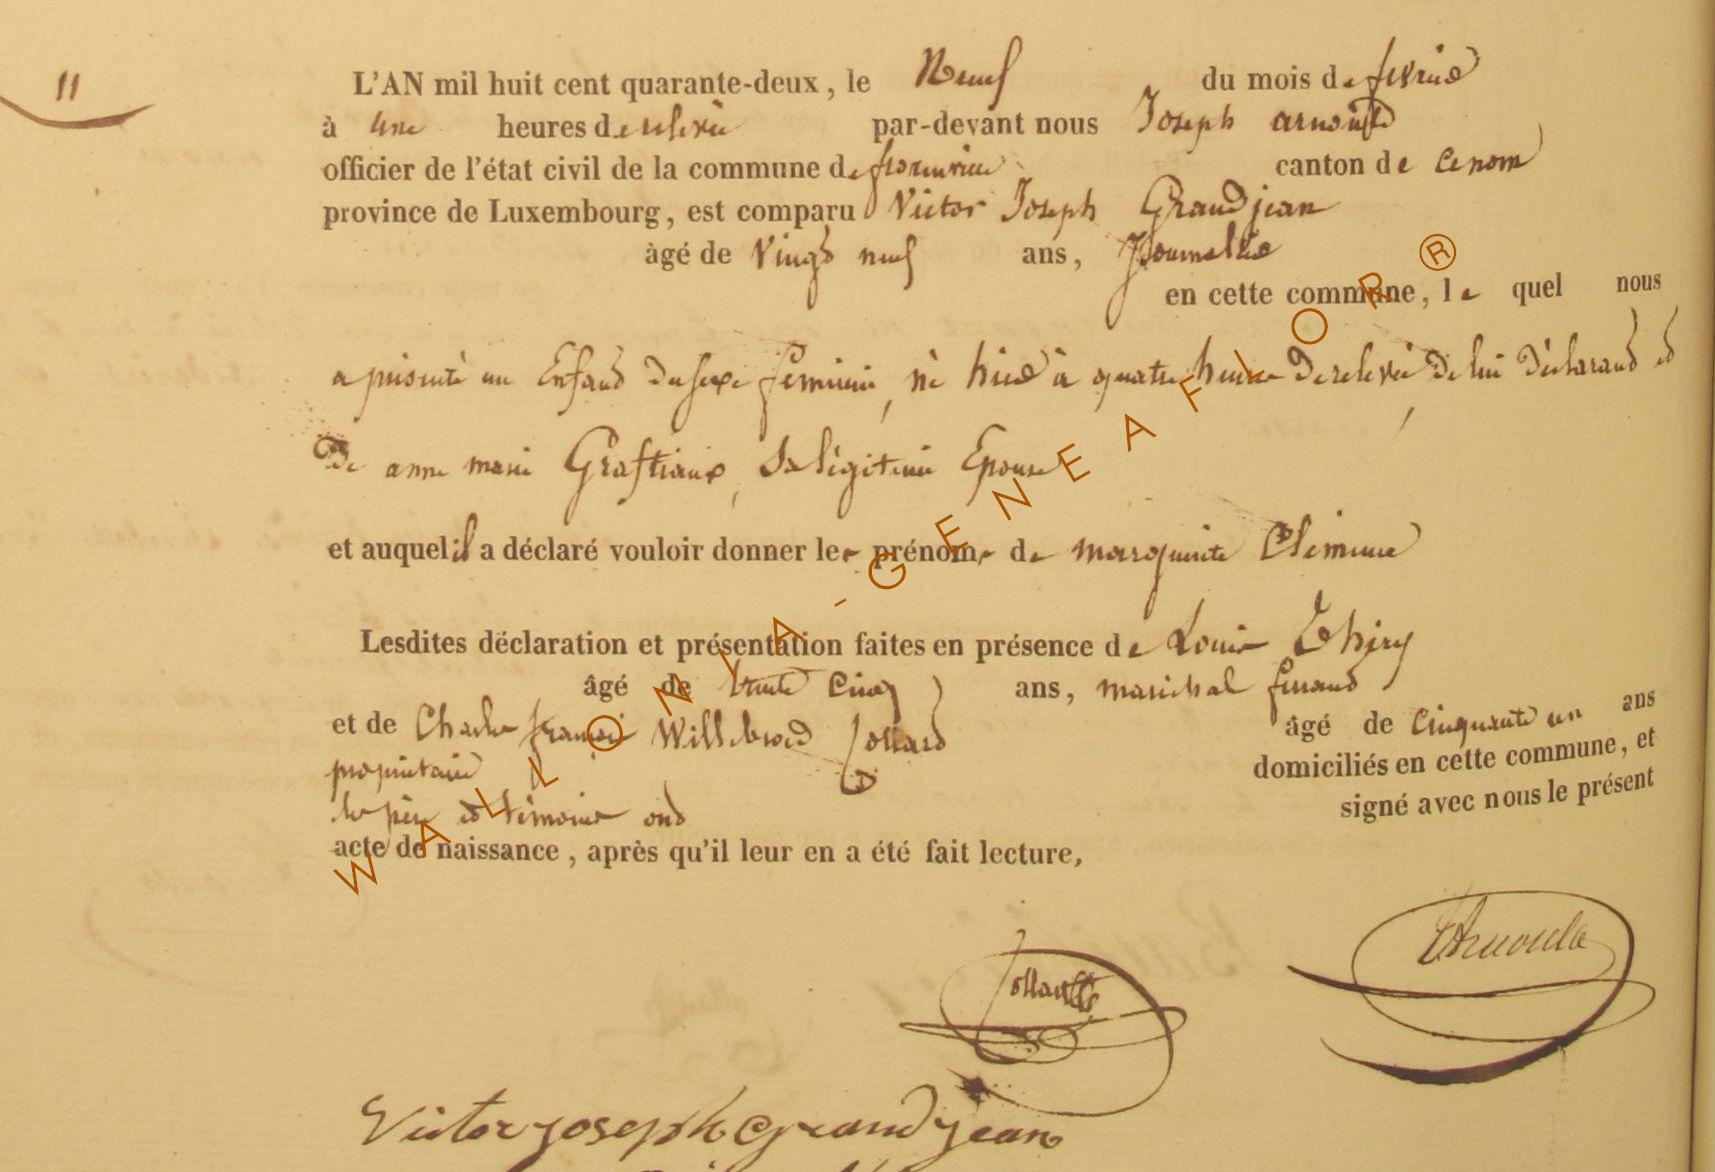 11
L'AN mil huit cent quarante-deux, le Neuf du mois de fevrier
à une heures de relevée par-devant nous Joseph arnould
officier de l'état civil de la commune de canton de
province de Luxembourg, est comparu Victor Joseph Grandjean
àgé de Vingt neuf ans, Journallier
en cette commune, le quel nous
a présenté un Enfand du sexe feminin, né hier à quatre heures de relevée, de lui déclarand et
De anne marie Graftiaux, Sa légitime Epouse
et auquel il a déclaré vouloir donner les prénoms de marguerite Clémence
Lesdites déclaration et présentation faites en présence de Louis Thiry
âgé de trente Cinq ans, maréchal ferrand
et de Charles françois Willebrord Jollard âgé de Cinquante un ans
propriétaire domiciliés en cette commune, et
les père et témoins ond signé avec nous le présent
acte de naissance, après qu'il leur en a été fait lecture,
JArnould
Victor joseph Grandjean
WALLONIA-GENEAFLOR®